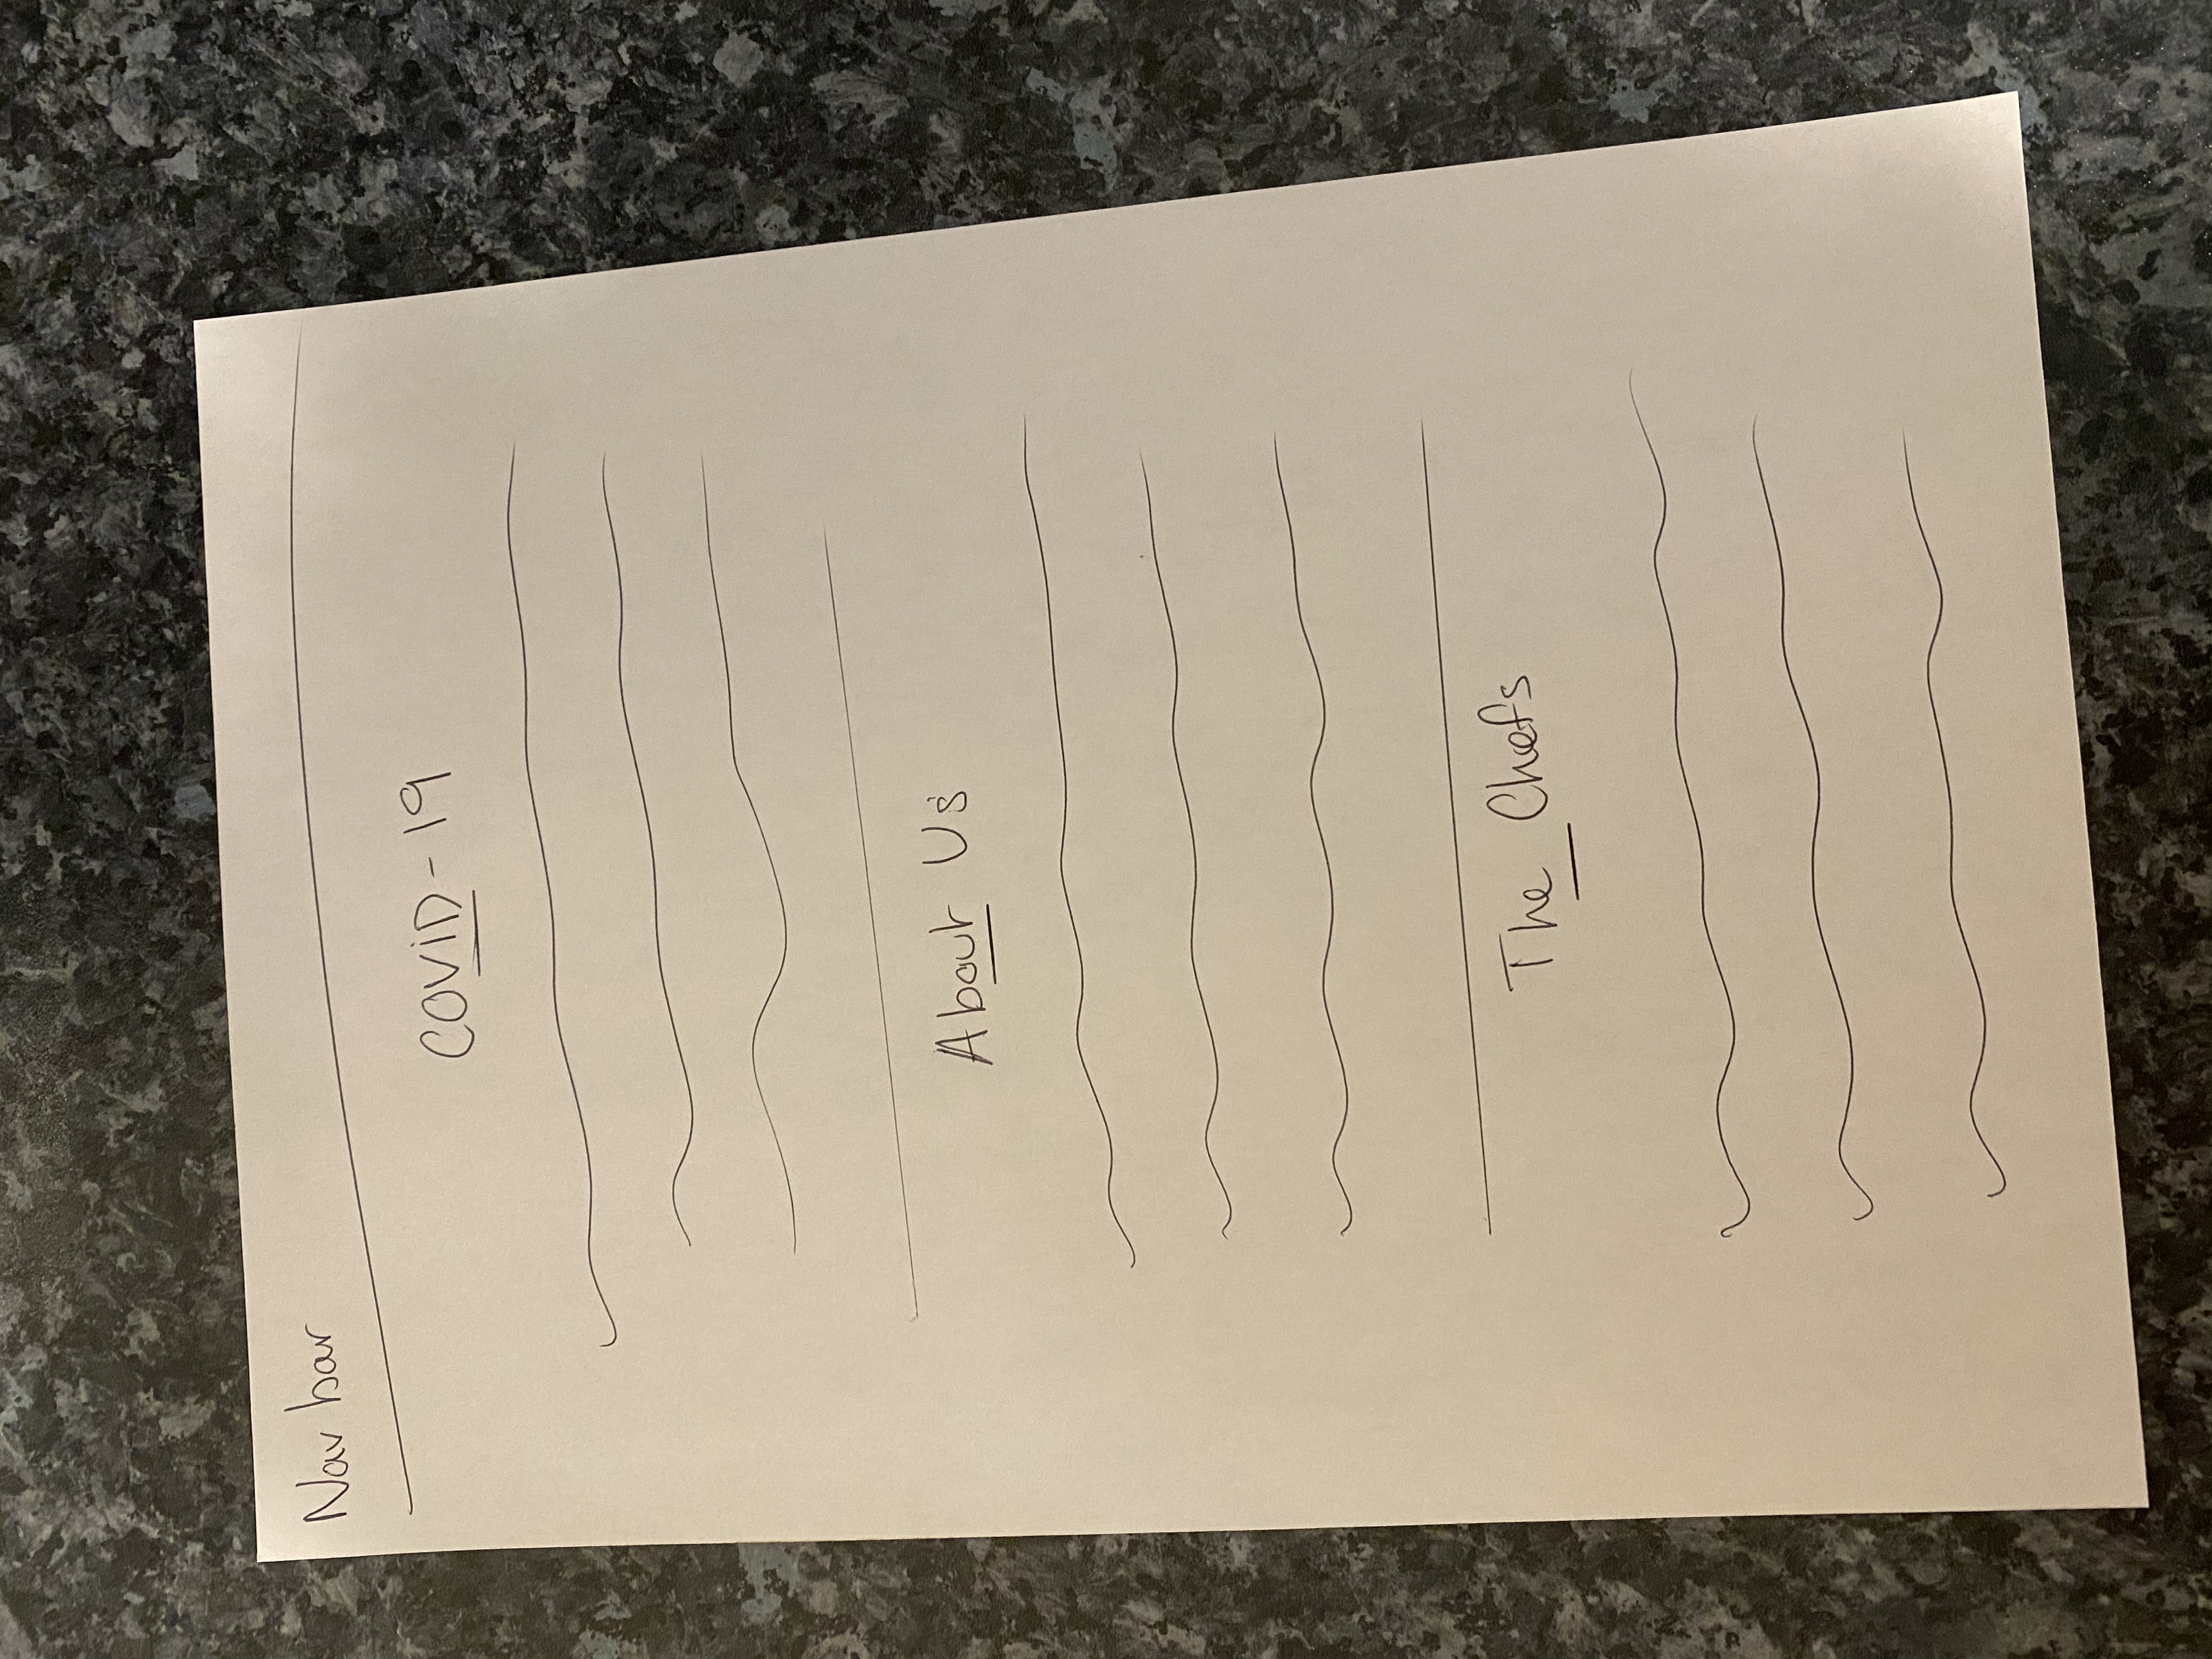 Nav bar
COViD-19
About Us
The Chefs